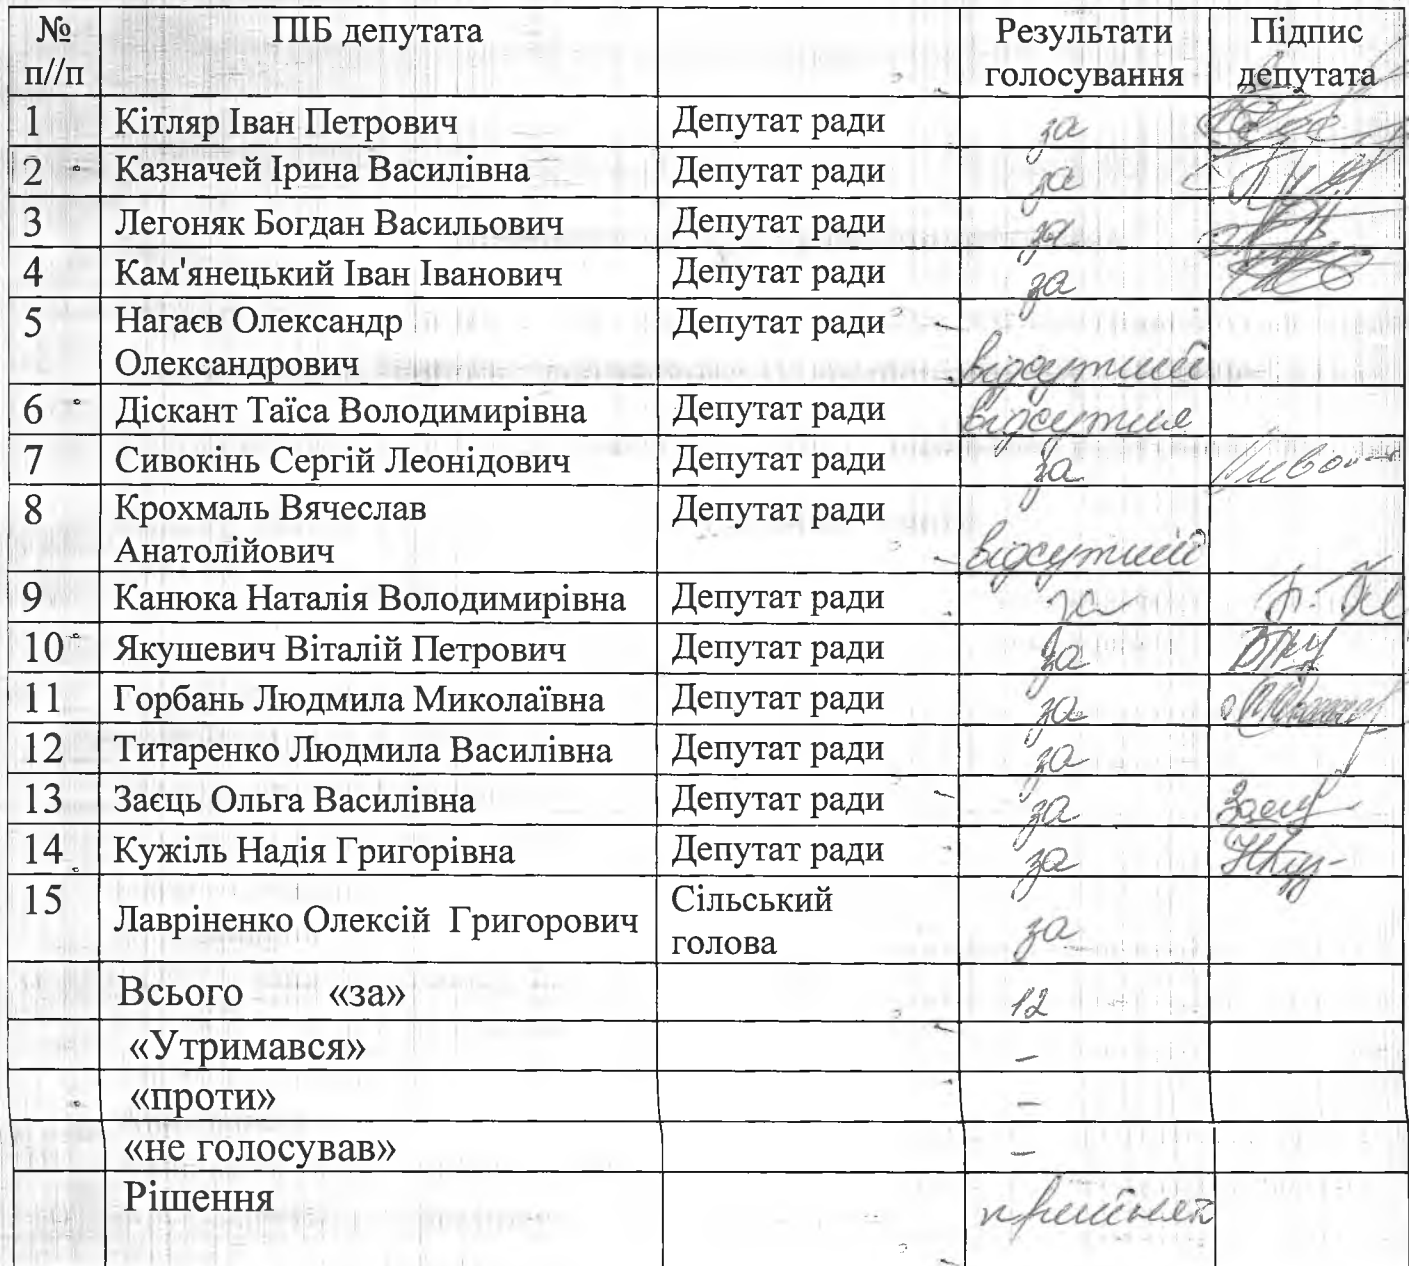 № ПІБ депутата Результати Підпис
п//п голосування депутата
1 Кітляр Іван Петрович Депутат ради за
2 Казначей Ірина Василівна Депутат ради за
3 Легоняк Богдан Васильович Депутат ради за
4 Кам'янецький Іван Іванович Депутат ради за
5 Нагаєв Олександр Депутат ради
Олександрович відсутній
6 Діскант Таїса Володимирівна Депутат ради відсутня
7 Сивокінь Сергій Леонідович Депутат ради за
8 Крохмаль Вячеслав Депутат ради
Анатолійович відсутній
9 Канюка Наталія Володимирівна Депутат ради за
10 Якушевич Віталій Петрович Депутат ради за
11 Горбань Людмила Миколаївна Депутат ради за
12 Титаренко Людмила Василівна Депутат ради за
13 Заєць Ольга Василівна Депутат ради за
14 Кужіль Надія Григорівна Депутат ради за
15 Сільський
Лавріненко Олексій Григорович голова за
Всього «за» 12
«Утримався» –
«проти» –
«не голосував» –
Рішення